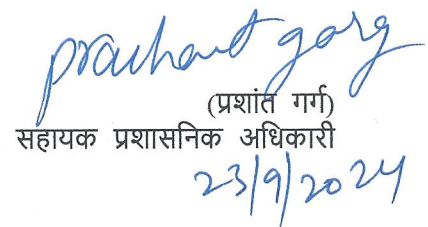 prashant garg
(प्रशांत गर्ग)
सहायक प्रशासनिक अधिकारी
23/9/2024